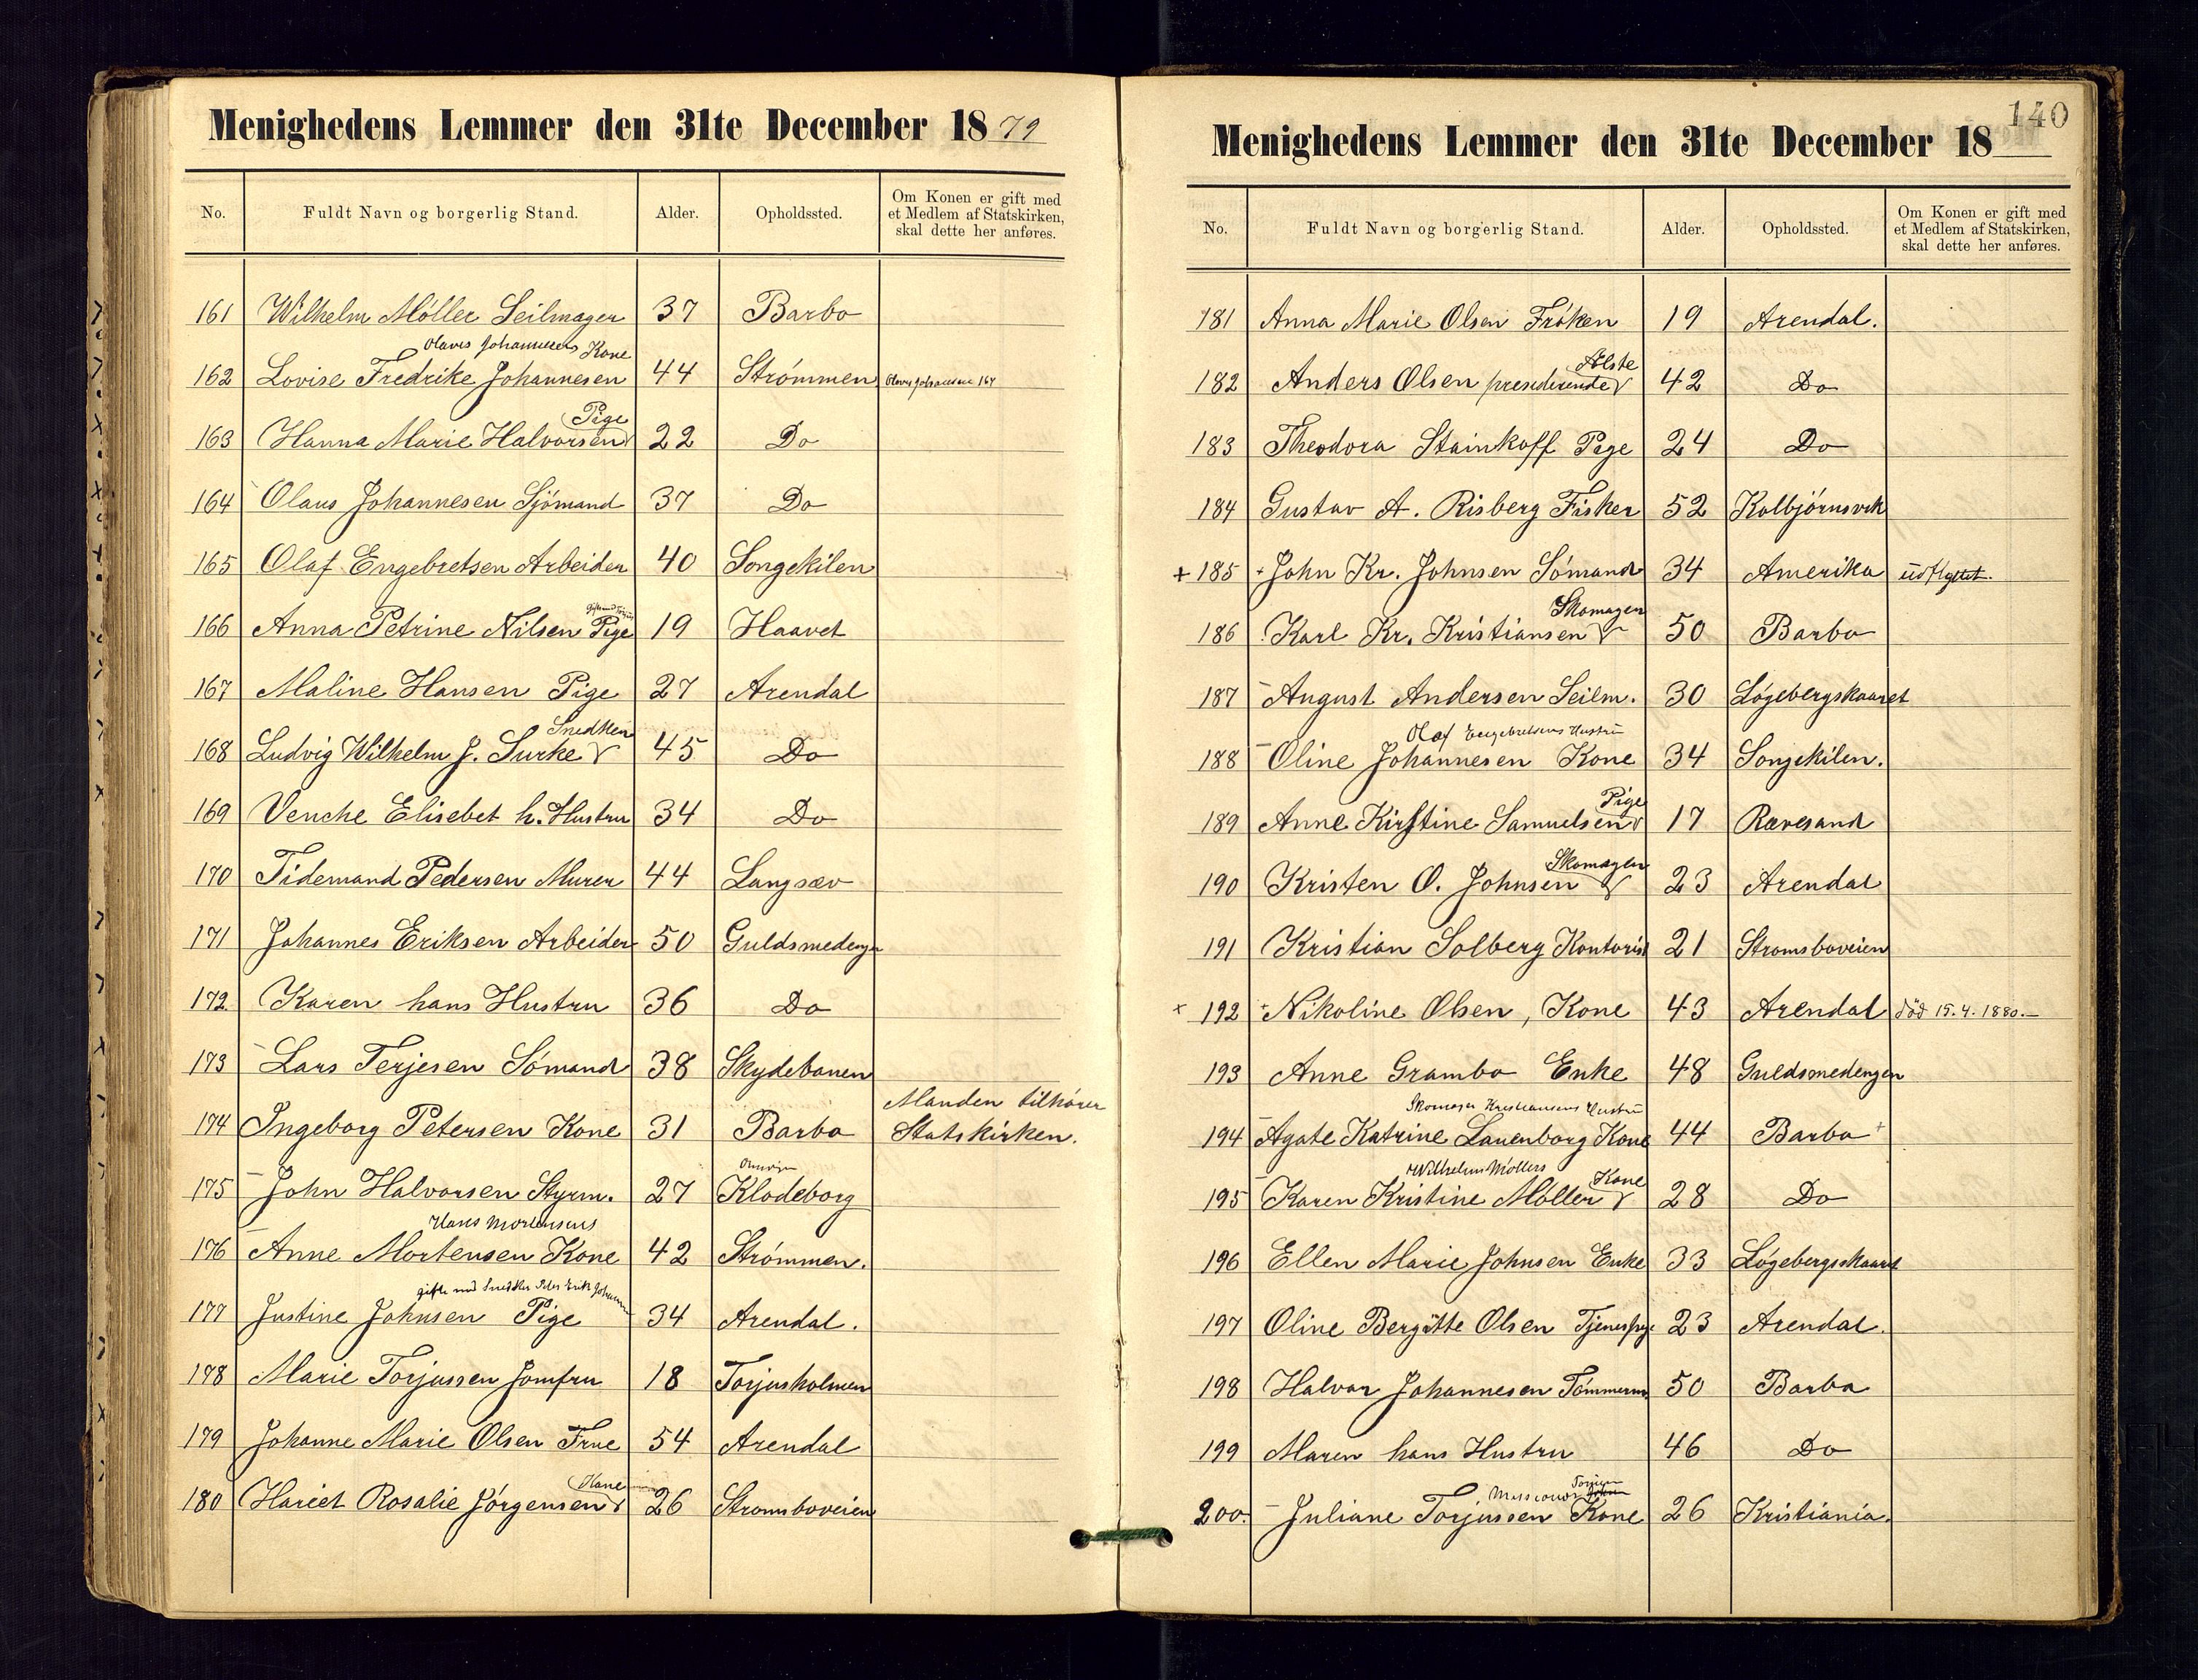 Menighedens Lemmer den 31te December 1879
No. Fuldt Navn og borgerlig Stand. Alder. Opholdssted. Om Konen er gift med et Medlem af Statskirken, skal dette her anføres.
161 Wilhelm Møller Seilmager 37 Barbo
Olaves Johannesens Kone
162 Lovise Fredrike Johannesen 44 Strømmen Olaves Johannesen 164
Pige
163 Hanna Marie Halvorsen 22 Do
164 Olaus Johannesen Sjömand 37 Do
165 Olaf Engebretsen Arbeider 40 Songekilen
166 Anna Petrine Nilsen Pige 19 Haavet
167 Maline Hansen Pige 27 Arendal
Snedker
168 Ludvig Wilhelm J. Surke 45 Do
169 Venche Elisebet h. Hustru 34 Do
170 Tidemand Pedersen Murer 44 Langsæv
171 Johannes Eriksen Arbeider 50 Guldsmedengen
172. Karen hans Hustru 36 Do
173 Lars Terjesen Sömand 38 Skydebanen
174 Ingeborg Petersen Kone 31 Barbo Manden tilhører Statskirken.
175 John Halvorsen Styrm. 27 Klodeborg
Hans Mortensens
176 Anne Mortensen Kone 42 Strømmen.
gifte med Snedker Peter Erik Johannesen
177 Justine Johnsen Pige 34 Arendal.
178 Marie Torjussen Jomfru 18 Torjusholmen
179 Johanne Marie Olsen Frue 54 Arendal
Kone
180 Hariet Rosalie Jørgensen 26 Stromsboveien
140
Menighedens Lemmer den 31te December 18
No. Fuldt Navn og borgerlig Stand. Alder. Opholdssted. Om Konen er gift med et Medlem af Statskirken, skal dette her anføres.
181 Anna Marie Olsen Frøken 19 Arendal.
Ælste
182 Anders Olsen presiderende 42 Do
183 Theodora Stainkoff Pige 24 Do
184 Gustav A. Risberg Fisker 52 Kolbjörnsvik
+ 185 + John Kr. Johnsen Sömand 34 Amerika udflyttet.
Skomager
186 Karl Kr. Kristiansen 50 Barbo
187 August Andersen Seilm. 30 Løgebergskaaret
Olaf Engebretsens Hustru
188 Oline Johannesen Kone 34 Songekilen.
Pige
189 Anne Kirstine Samuelsen 17 Rævesand
Skomager
190 Kristen O. Johnsen 23 Arendal
191 Kristian Solberg Kontorist 21 Stromsboveien
x 192 + Nikoline Olsen, Kone 43 Arendal död 15.4.1880.
193 Anne Grambo Enke 48 Guldsmedengen
Skomager Kristiansens Hustru
194 Agate Katrine Lauenborg Kone 44 Barbo +
Wilhelm Møllers Kone
195 Karen Kristine Møller 28 Do
196 Ellen Marie Johnsen Enke 33 Løgebergsskaaret
197 Oline Bergitte Olsen Tjenespige 23 Arendal.
198 Halvor Johannesen Tömmerm. 50 Barbo
199 Maren hans Hustru 46 Do
Torjusen
200. Juliane Torjussen Kone 26 Kristiania.